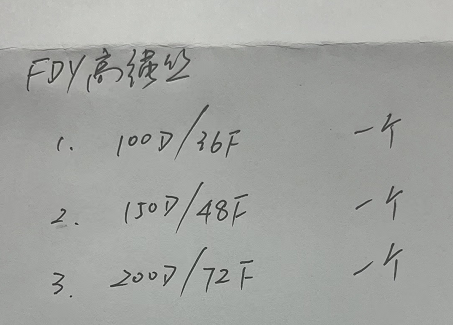 FDY高缕丝
1. 100D/36F 一个
2. 150D/48F 一个
3. 200D/72F 一个